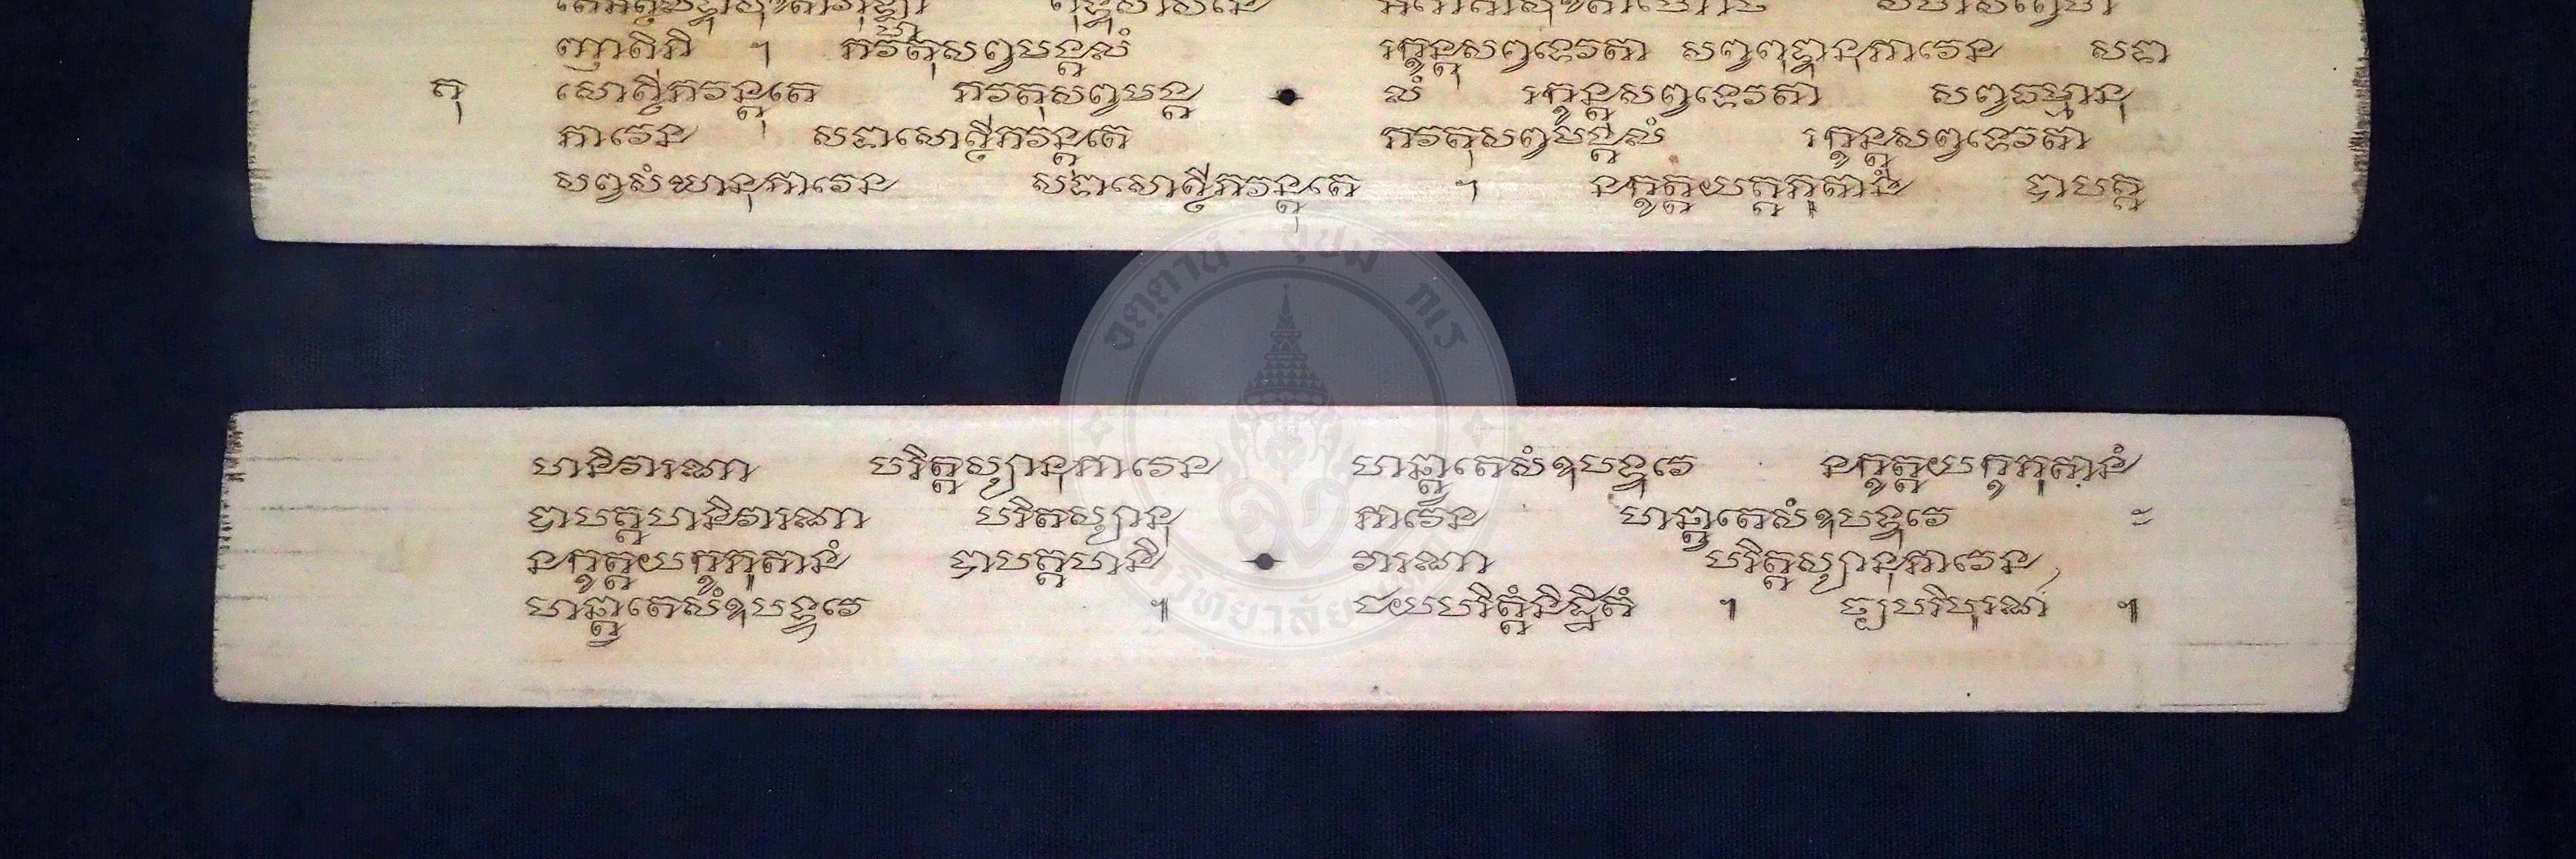 តេអត្ថលទ្ធាសុខិតាវិរុឡ្ហា ពុទ្ធសាសនេ អរោគាសុខិតាហោថ សហសព្វេហិ
ញាតិភិ ។ ភវតុសព្វមង្គលំ រក្ខន្តុសព្វទេវតា សព្វពុទ្ធានុភាវេន សទា
តុ សោត្ថីភវន្តុតេ ភវតុសព្វមង្គ លំ រក្ខន្តុសព្វទេវតា សព្វធម្មានុ
ភាវេន សទាសោត្ថីភវន្តុតេ ភវតុសព្វមង្គលំ រក្ខន្តុសព្វទេវតា
សព្វសំឃានុភាវេន សទាសោត្ថីភវន្តុតេ ។ នក្ខត្តយក្ខភូតានំ បាបគ្គ
ហនិវារណា បរិត្តស្យានុភាវេន ហន្ត្វាតេសំឧបទ្ទវេ នក្ខត្តយក្ខភូតានំ
បាបគ្គហនិវារណា បរិតស្យានុ ភាវេន ហន្ត្វាតេសំឧបទ្ទវេ ៈ
នក្ខត្តយក្ខភូតានំ បាបគ្គហនិ វារណា បរិត្តស្យានុភាវេន
ហន្ត្វាតេសំឧបទ្ទវេ ៕ ជយបរិត្តំនិដ្ឋិតំ ។ ច្បបរិបុរណ៌ ៕